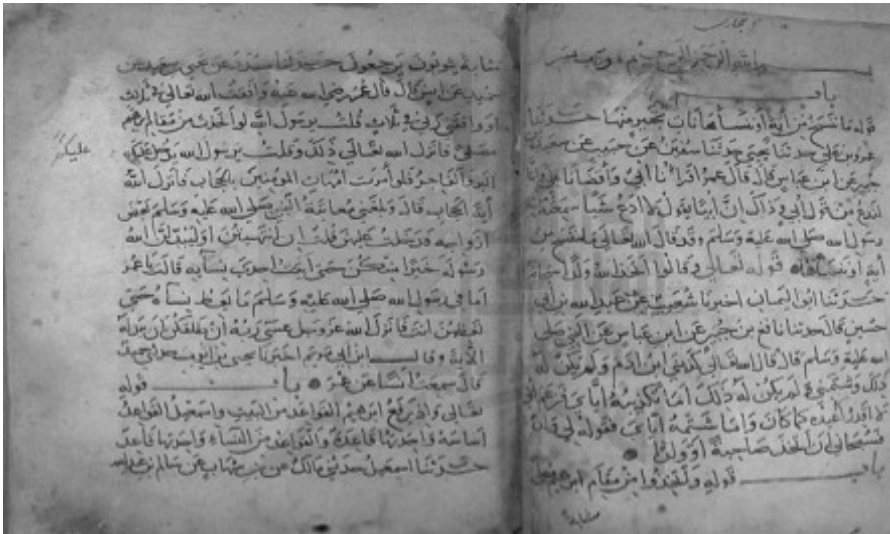 البخاري
بسم الله الرحمن الرحيم
باب
قوله ما ننسخ من آية أو ننسأها نأت بخير منها حدثنا
عمرو بن علي حدثنا يحيى حدثنا سفين عن حبيب عن سعيد بن
جبير عن ابن عباس قال قال عمر اقرأنا أبي وأقضانا علي وإنا
لندع من قول أبي وذاك أن أبيا يقول لا أدع شيا سمعته من
رسول الله صلى الله عليه وسلم وقد قال الله تعالى ما ننسخ من
آية أو ننسأها قوله تعالى وقالوا اتخذ الله ولدا سبحانه
حدثنا ابو اليمان اخبرنا شعيب عن عبد الله بن أبي
حسين قال حدثنا نافع بن جبير عن ابن عباس عن النبي صلى
الله عليه وسلم قال قال الله تعالى كذبني ابن آدم ولم يكن له
ذلك وشتمني ولم يكن له ذلك أما تكذيبه إياي فزعم أني
لا أقدر أن أعيده كما كان وأما شتمه إياي فقوله لي ولد
فسبحاني أن أتخذ صاحبة أو ولدا
باب قوله واتخذوا من مقام ابرهيم مصلى
مثابة
مثابة يثوبون يرجعون حدثنا مسدد عن يحيى بن سعيد عن
حميد عن انس قال قال عمر رضي الله عنه وافقت الله تعالى في ثلاث
أو وافقني ربي في ثلاث قلت يرسول الله لو اتخذت من مقام ابرهيم
مصلى فأنزل الله تعالى ذلك وقلت يرسول الله يدخل عليك
البر والفاجر فلو أمرت أمهات المومنين بالحجاب فأنزل الله
آية الحجاب قال وبلغني معاتبة النبي صلى الله عليه وسلم بعض
أزواجه فدخلت عليهن قلت إن انتهيتن أو ليبدلن الله
رسوله خيرا منكن حتى أتيت احدى نسايه قالت يا عمر
أما في رسول الله صلى الله عليه وسلم ما يعظ نساه حتى
تعظهن انت فأنزل الله عز وجل عسى ربه إن طلقكن أن يبدله
الآية وقال ابن أبي مريم اخبرنا يحيى بن ايوب حدثني حميد
قال سمعت أنسا عن عمر باب قوله
تعالى وإذ يرفع ابرهيم القواعد من البيت واسمعيل القواعد
أساسه واحدتها قاعدة والقواعد من النساء واحدتها قاعد
حدثنا اسمعيل حدثني مالك عن ابن شهاب عن سالم بن عبد الله
عليكم